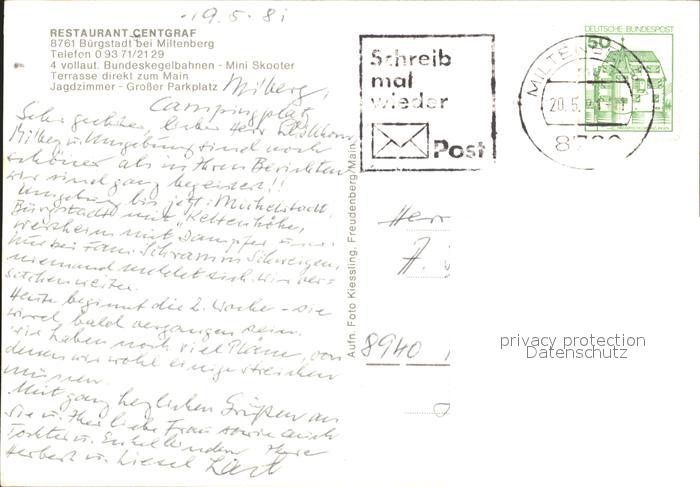 19.5.81
RESTAURANT CENTGRAF
8761 Bürgstadt bei Miltenberg
Telefon 0 93 71/21 29
4 vollaut. Bundeskegelbahnen - Mini Skooter
Terrasse direkt zum Main
Jagdzimmer - Großer Parkplatz
Milberg,
Campingplatz
Sehr geehrter, lieber Herr
Milbg u. Umgebung sind noch
schöner als in Ihren Berichten
wir sind ganz begeistert!!
Umgebung bis jetzt: Michelstadt,
Bürgstadt mit "Keltenhöhe,
Wertheim mit Dampfer u.s.w.
Nur bei Fam. Schwamm Schweigen,
niemand meldet sich. Wir ver-
suchen weiter.
Heute beginnt die 2. Woche - sie
wird bald vergangen sein.
Wir haben noch viel Pläne, von
denen wir wohl einige streichen
müssen.
Mit ganz herzlichen Grüßen an
Sie u. Ihre liebe Frau sowie auch
Tochter u. Enkelkinder Ihre
Herbert u. Liesel
Aufn. Foto Kiessling, Freudenberg/Main
Schreib
mal
wieder
Post
DEUTSCHE BUNDESPOST
50
MILTENBERG
20.5.81
Herr
A.
8940
privacy protection
Datenschutz